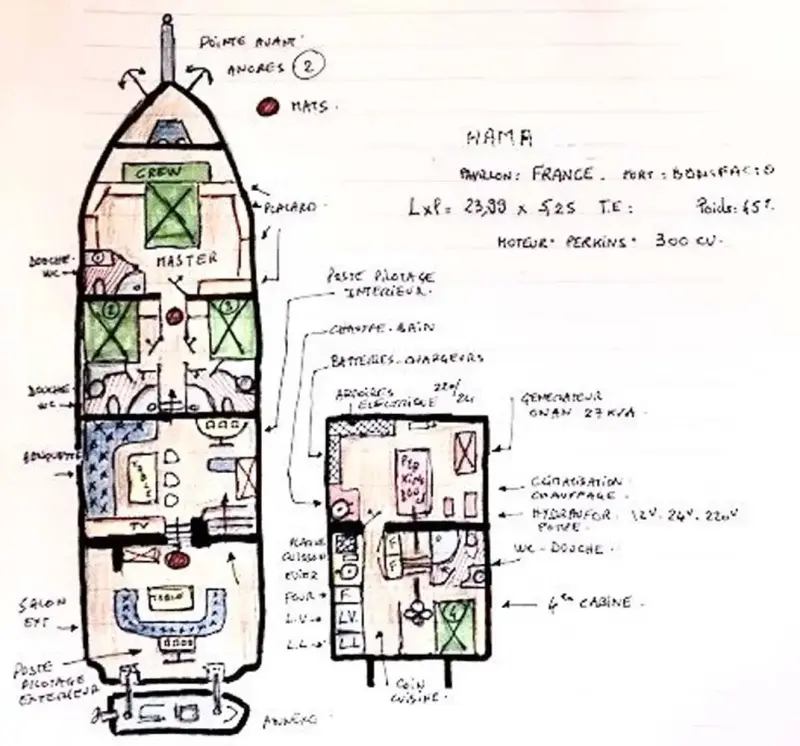 POINTE AVANT
ANCRES 2
MATS.
NAMA
PAVILLON: FRANCE. PORT: BONIFACIO
LxP= 23,99 x 5,25 T.E: Poids: 45T.
MOTEUR: PERKINS: 300 CV.
CREW
PLACARD
MASTER
DOUCHE
WC
2
3
DOUCHE
WC
POSTE PILOTAGE
INTERIEUR.
CHAUFFE-BAIN
BATTERIES-CHARGEURS
ARMOIRES
ELECTRIQUE 220/24
GENERATEUR
ONAN 27 KVA.
BANQUETTE
TABLE
TV
PERKINS
300
CLIMATISATION
CHAUFFAGE.
HYDRAUFOR: 12V. 24V. 220V
PLAQUE
CUISSON
EVIER
WC-DOUCHE
F
F
FOUR
F.
L.V
LV.
L.L
L.L
4
4EME CABINE.
SALON
EXT
TABLE
POSTE
PILOTAGE
EXTERIEUR
COIN
CUISINE.
ANNEXE